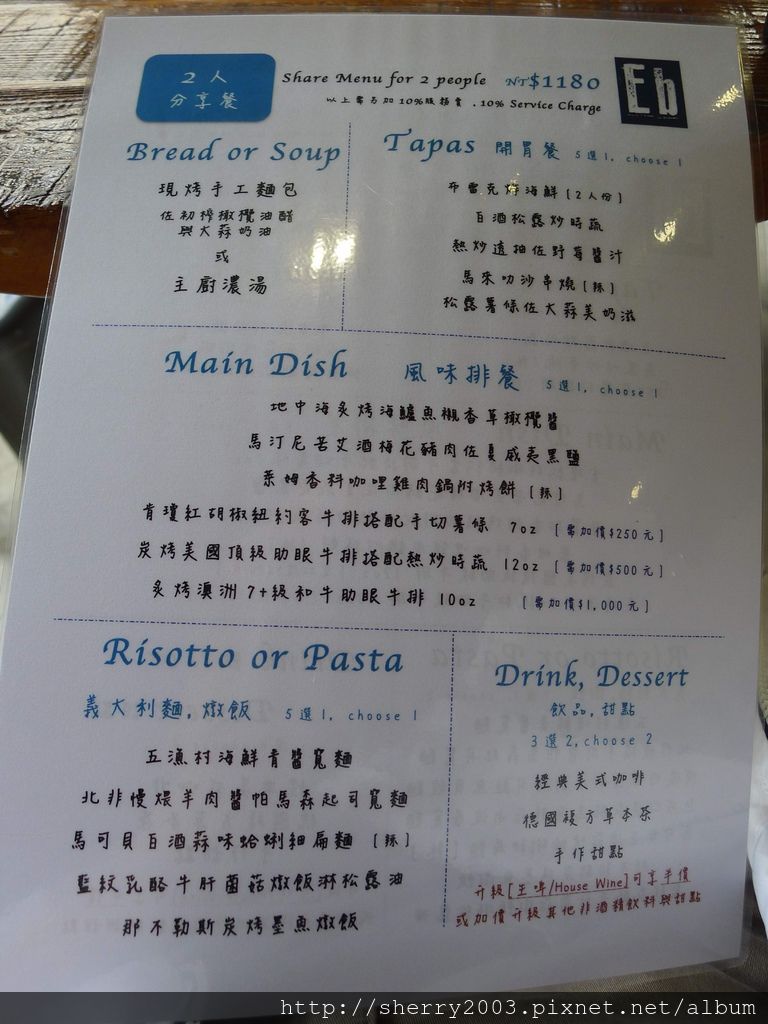 2人
分享餐
Share Menu for 2 people NT$1180
以上需另加10%服務費 . 10% Service Charge
Eb
Bread or Soup
現烤手工麵包
佐初榨橄欖油醋
與大蒜奶油
或
主廚濃湯
Tapas 開胃餐 5選1, choose 1
布雷克烤海鮮(2人份)
白酒松露炒時蔬
熱炒透抽佐野莓醬汁
馬來叻沙串燒(辣)
松露薯條佐大蒜美奶滋
Main Dish 風味排餐 5選1, choose 1
地中海炙烤海鱸魚襯香草橄欖醬
馬汀尼苦艾酒梅花豬肉佐夏威夷黑鹽
萊姆香料咖哩雞肉鍋附烤餅 (辣)
肯瓊紅胡椒紐約客牛排搭配手切薯條 7oz (需加價$250元)
炭烤美國頂級肋眼牛排搭配熱炒時蔬 12oz (需加價$500元)
炙烤澳洲7+級和牛肋眼牛排 10oz (需加價$1,000元)
Risotto or Pasta
義大利麵, 燉飯 5選1, choose 1
五漁村海鮮青醬寬麵
北非慢煨羊肉醬帕馬森起司寬麵
馬可貝白酒蒜味蛤蜊細扁麵 (辣)
藍紋乳酪牛肝菌菇燉飯淋松露油
那不勒斯炭烤墨魚燉飯
Drink, Dessert
飲品, 甜點
3選2, choose 2
經典美式咖啡
德國複方草本茶
手作甜點
升級[生啤/House Wine]可享半價
或加價升級其他非酒精飲料與甜點
http://sherry2003.pixnet.net/album